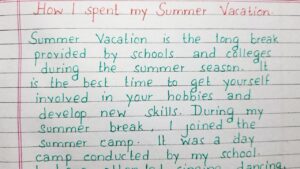 How I spent my Summer Vacation.
Summer Vacation is the long break
provided by schools and colleges
during the summer season. It
is the best time to get yourself
involved in your hobbies and
develop new skills. During my
summer break, I joined the
summer camp. It was a day
camp conducted by my school.
singing, dancing,